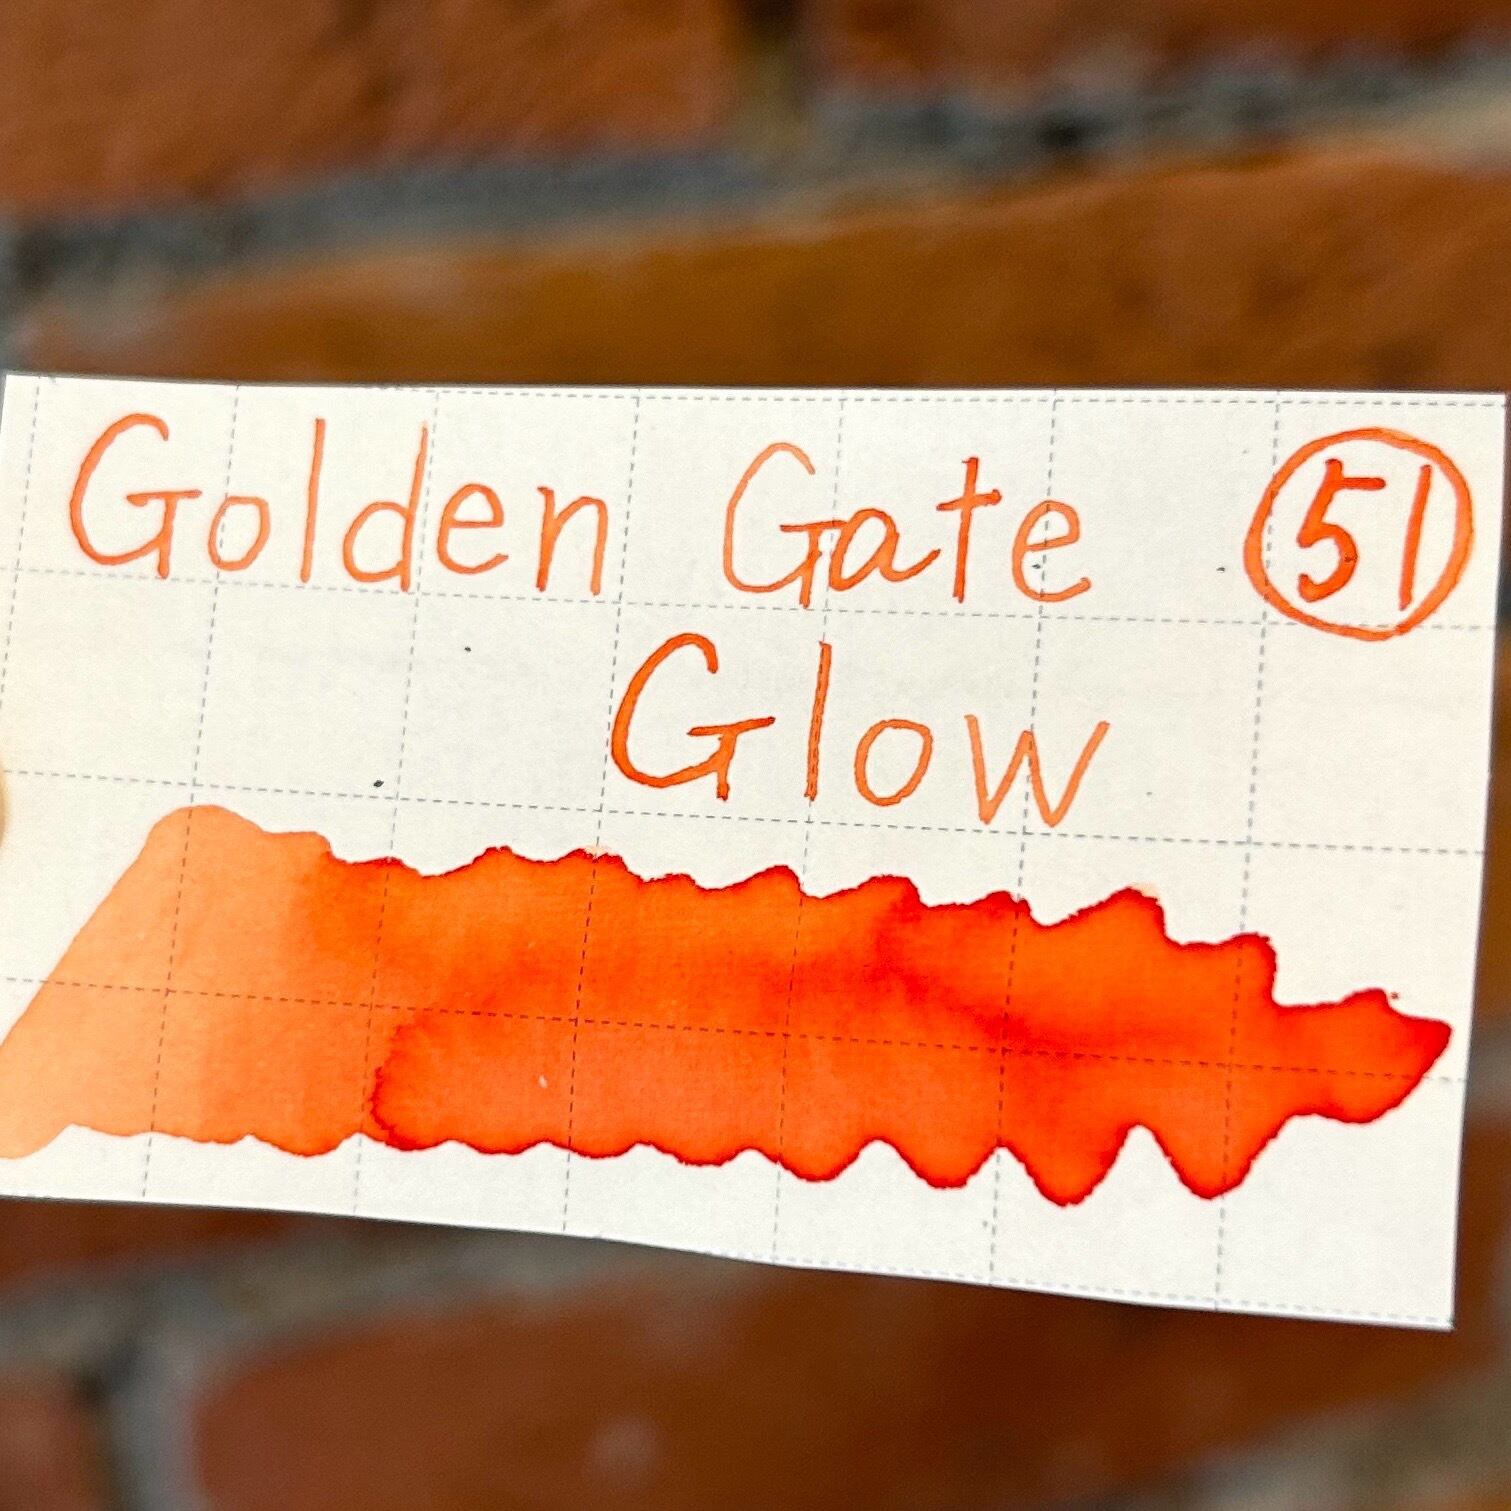 Golden Gate 51
Glow